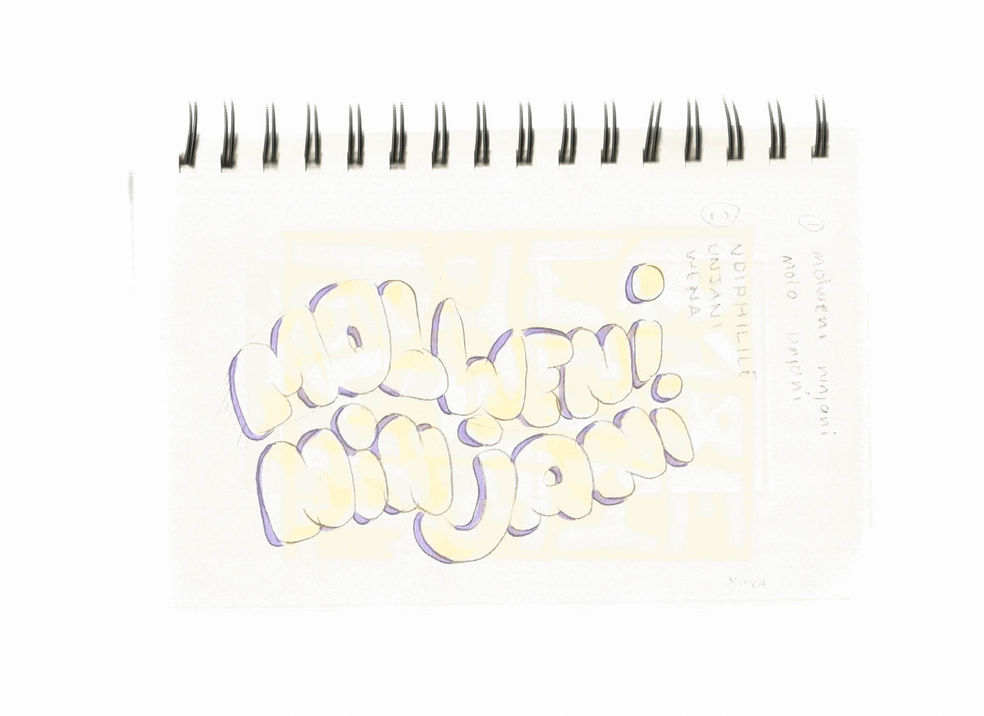 MOLWENi
NiNJANi
1 molweni ninjani
molo unjani
2 NDIPHILILE
UNJANI
WENA